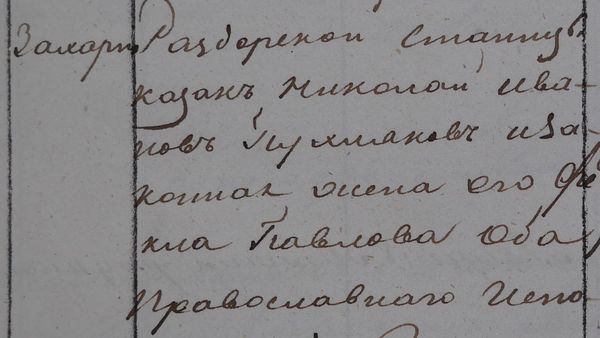 Захарій Раздорской станицы
казакъ Николай Ива-
новъ Пухляковъ и за-
конная жена его Фе
кла Павлова Оба
Православнаго Испо-